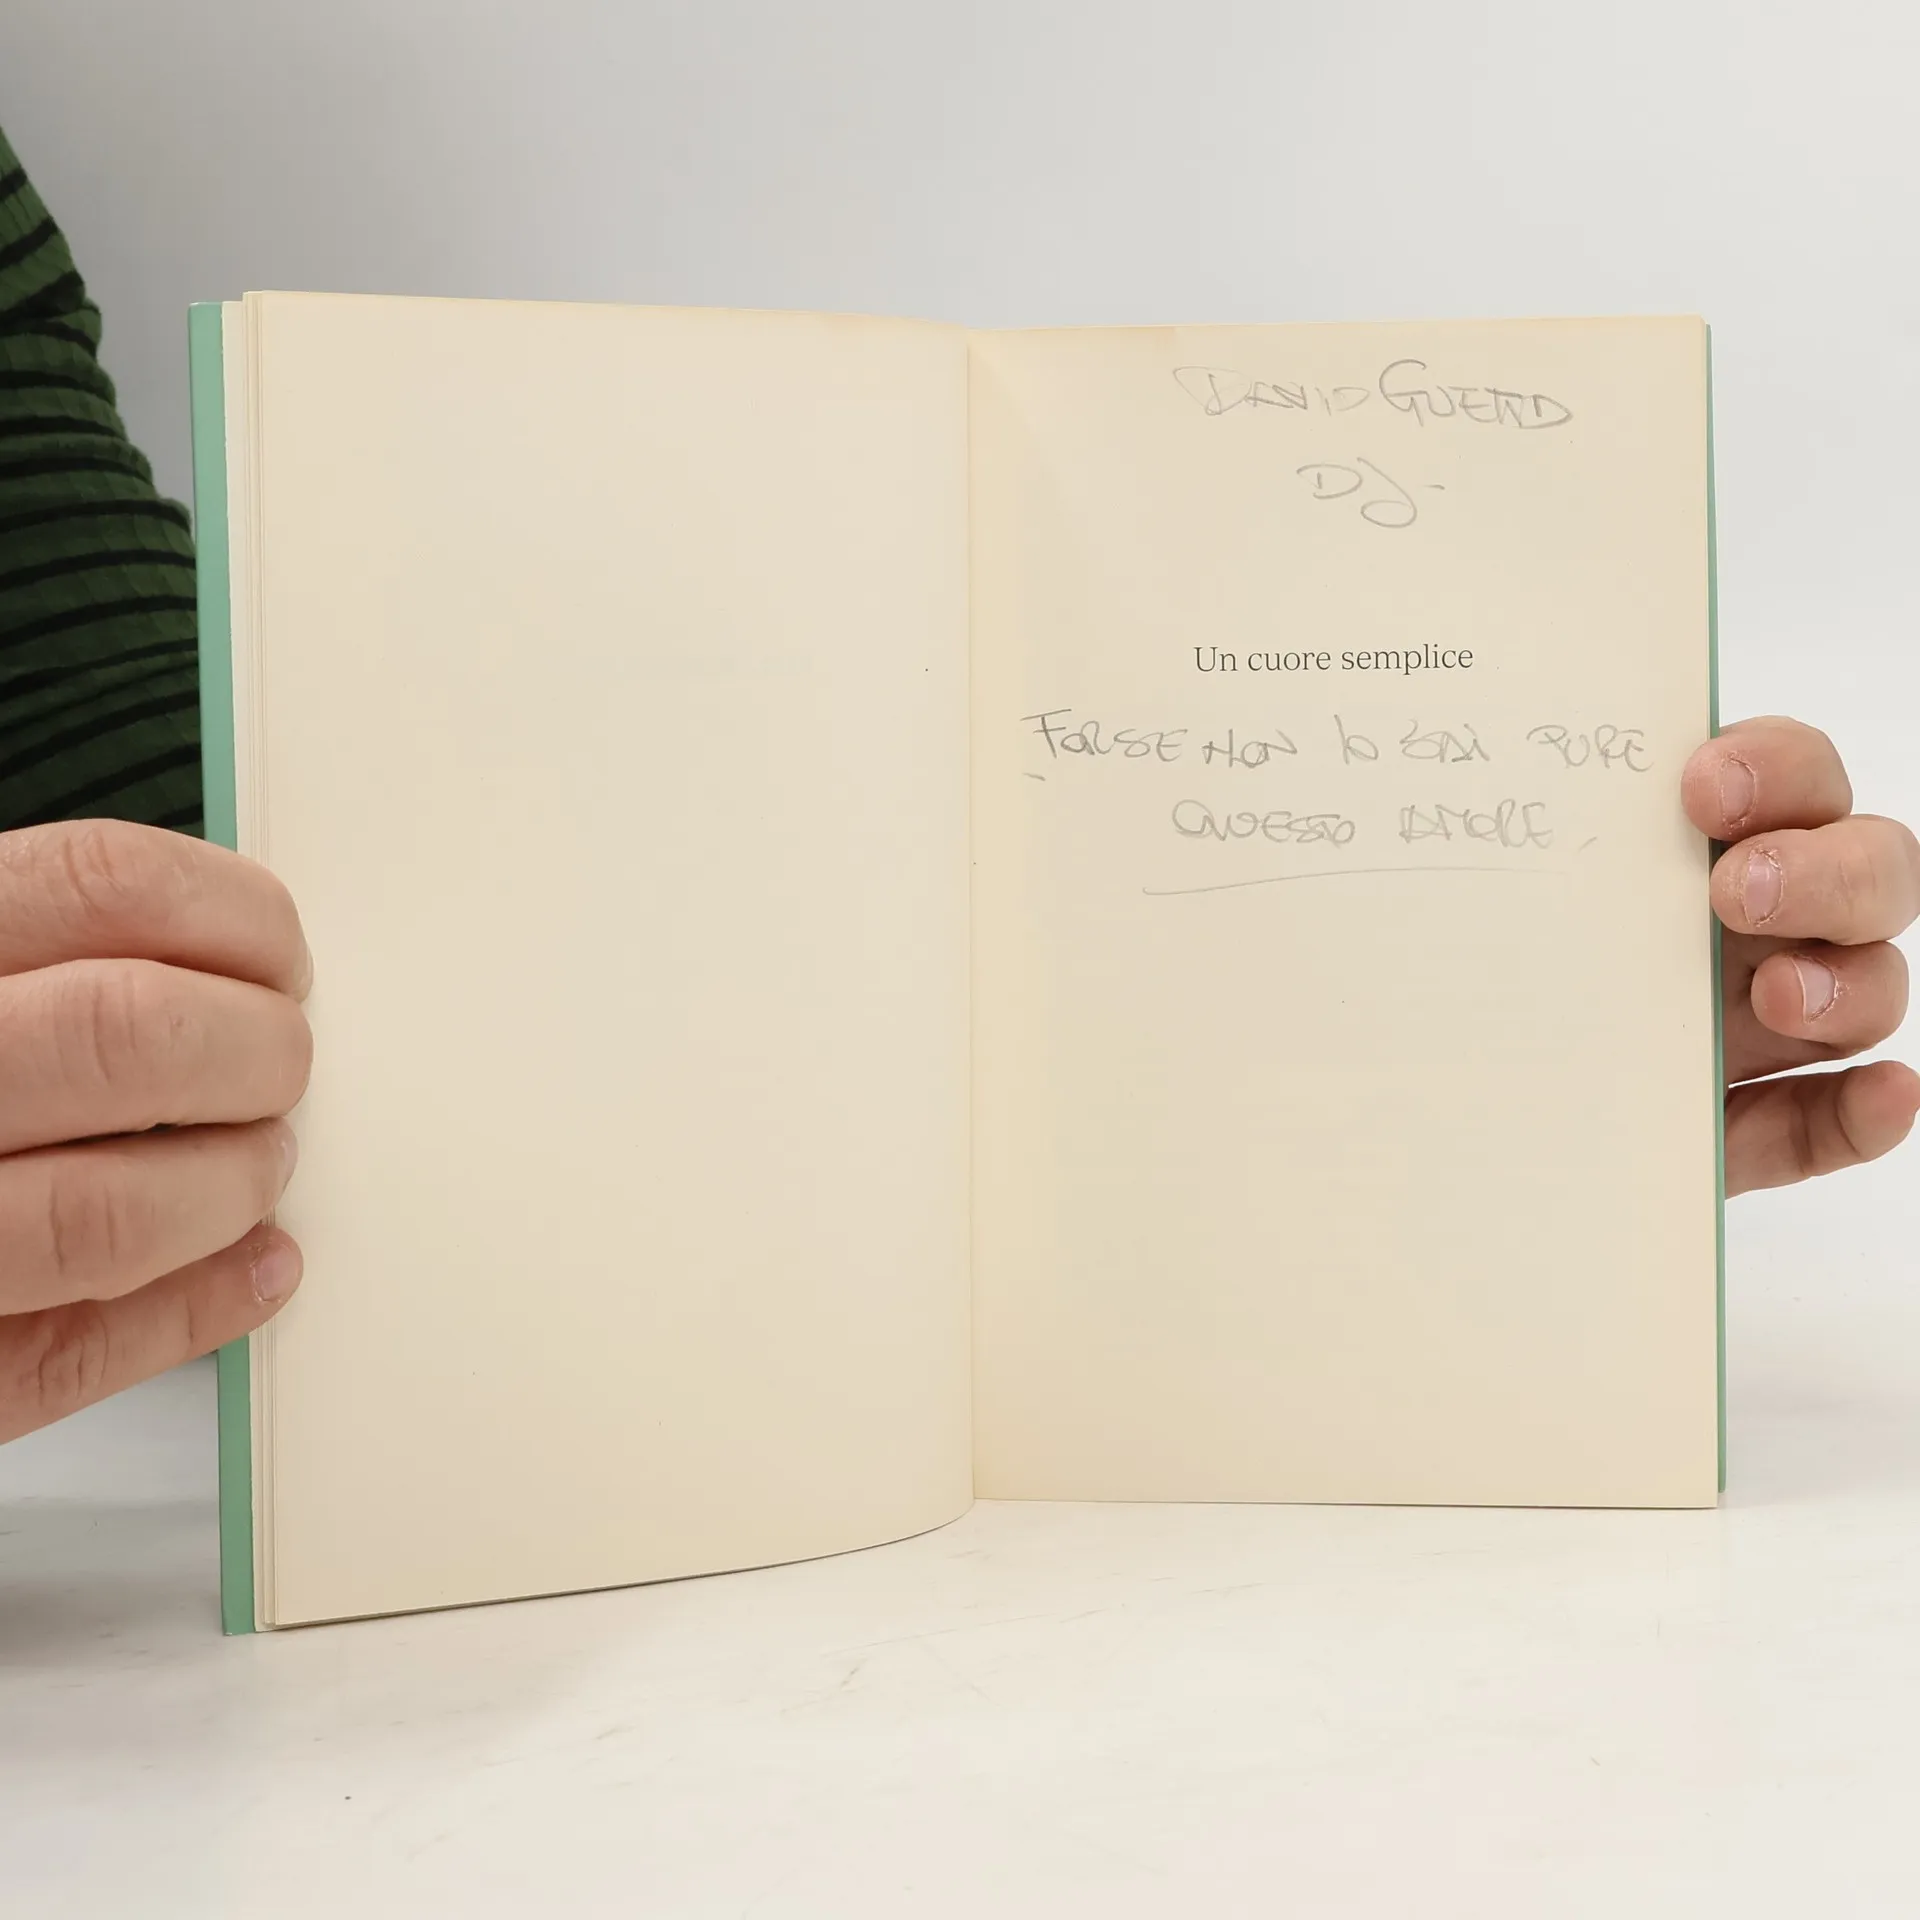 DAVID GUETTA
DJ-
Un cuore semplice
FORSE NON lo SAI PURE
QUESTO AMORE.